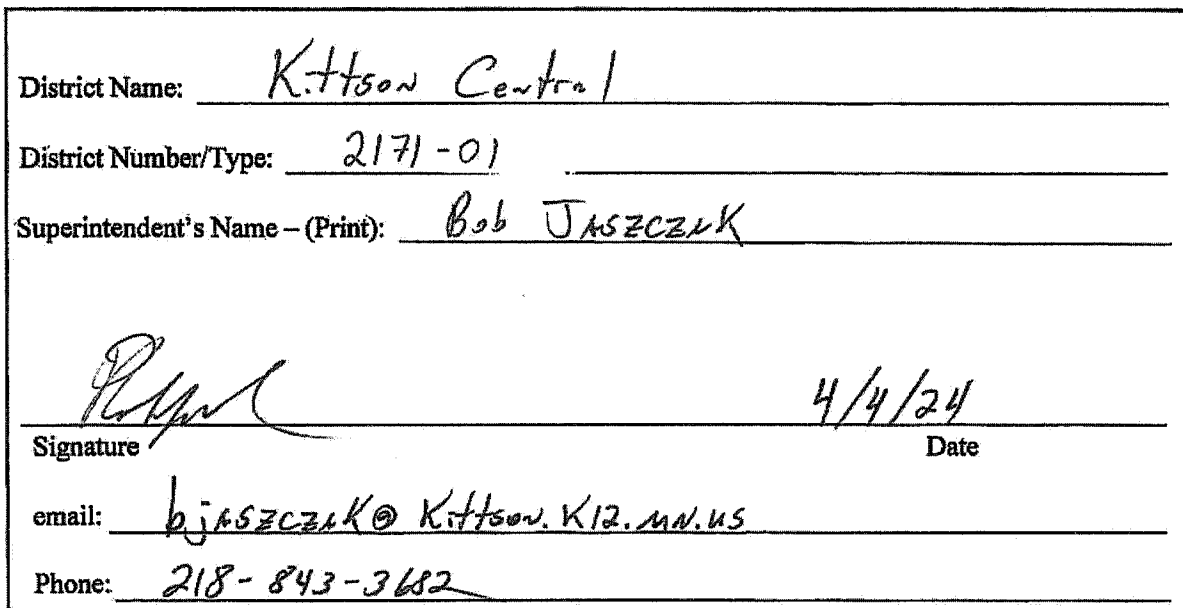 District Name: Kittson Central
District Number/Type: 2171-01
Superintendent's Name – (Print): Bob Jaszczak
4/4/24
Signature Date
email: bjaszczak@kittson.k12.mn.us
Phone: 218-843-3682